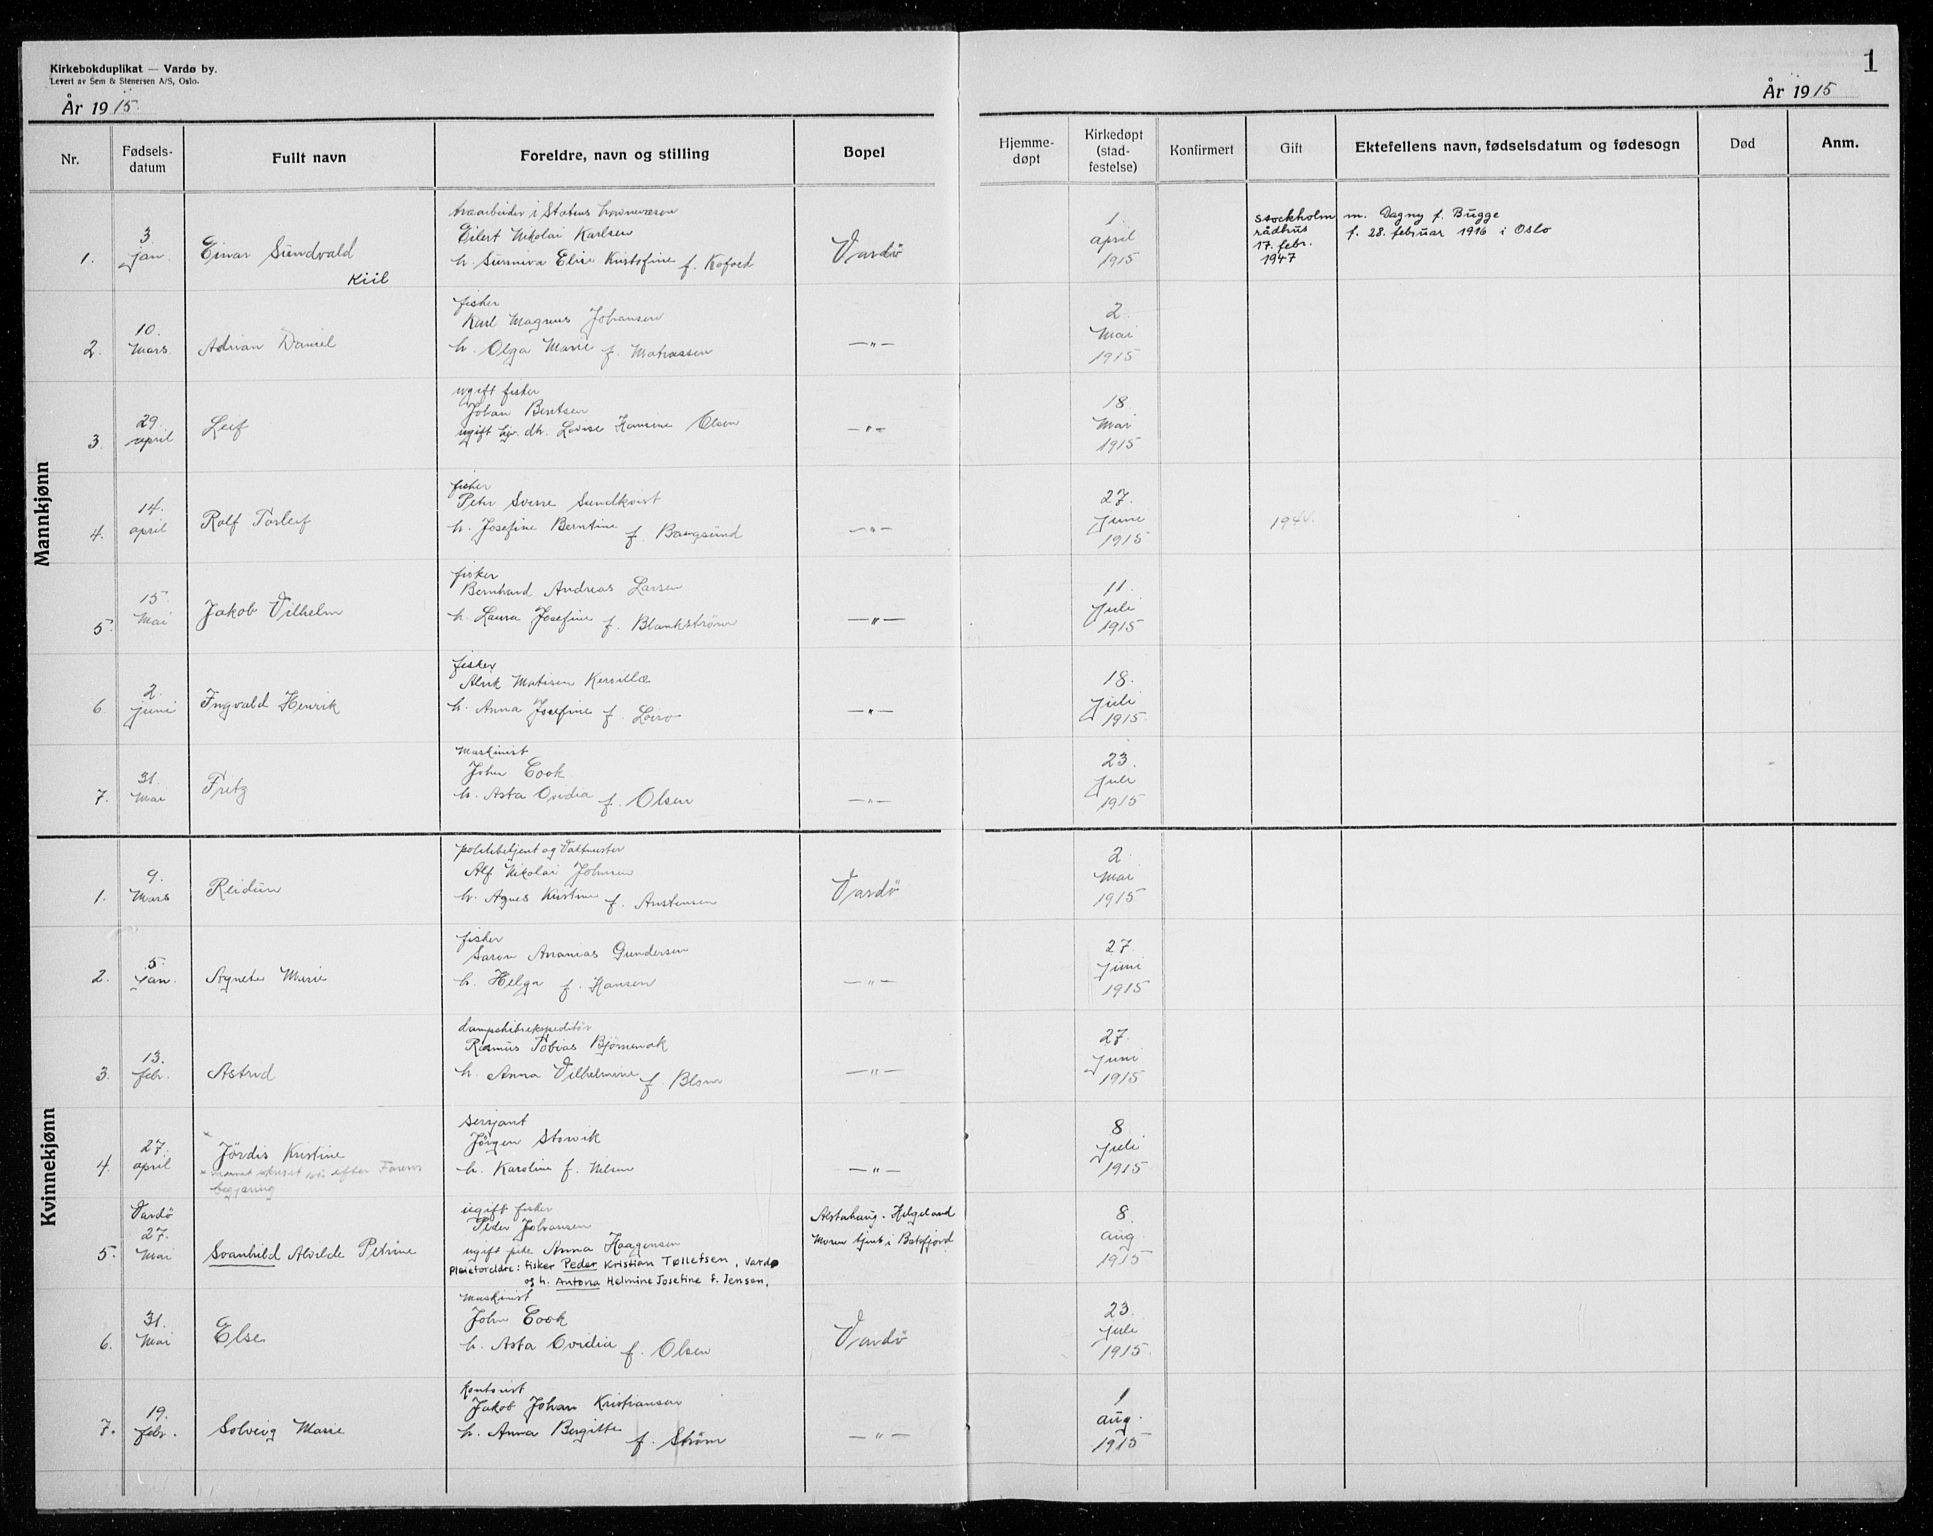 Kirkebokduplikat — Vardø by.
Levert av Sem & Stenersen A/S, Oslo.
År 1915.
1
År 1915
Nr. Fødsels-datum Fullt navn Foreldre, navn og stilling Bopel Hjemme-døpt Kirkedøpt (stad-festelse) Konfirmert Gift Ektefellens navn, fødselsdatum og fødesogn Død Anm.
Mannkjønn
i Statens havnevæsen
1. 3. jan. Einar Sundvald Kiil
Eilert Nikolai Karlsen
h. Sunniva Elise Kristofine f. Kofoed
Vardö
1 april 1915
Stockholm rådhus 17. febr. 1947
m. Dagny f. Bugge
f. 28. februar 1916 i Oslo
2. 10. Mars Adrian Daniel
fisker
Karl Magnus Johansen
h. Olga Marie f. Mathissen
—„—
2 Mai 1915
3. 29. april Leif
ugift fisker
Johan Bentsen
ugift hjv. dtr. Lovise Hansine Olsen
—„—
18 Mai 1915
4. 14. april Rolf Torleif
fisker
Peter Sverre Sundkvist
h. Josefine Berntine f. Bangsund
—„—
27. Juni 1915
1944.
5. 15. Mai Jakob Vilhelm
fisker
Bernhard Andreas Larsen
h. Laura Josefine f. Blankström
—„—
11. Juli 1915
6. 2. juni Ingvald Henrik
fisker
Alrik Matisen
h. Anna Josefine f.
—„—
18. Juli 1915.
7. 31. Mai Fritz
Maskinist
John Cook
h. Asta Ovidia f. Olsen
—„—
23. Juli 1915
Kvinnekjønn
1. 9. Mars Reidun
politibetjent og Vaktmester
Alf Nikolai Johnsen
h. Agnes Kristine f. Anstensen
Vardö
2. Mai 1915
2. 5. Jan. Agnete Marie
fisker
Saron Ananias Gundersen
h. Helga f. Hansen
—„—
27. Juni 1915
3. 13. febr. Astrid
dampskibsekspeditör
Rasmus Tobias
h. Anna Vilhelmine f.
—„—
27. Juni 1915
4. 27. april Jördis Kristine
efter Farens
begjæring
Sersjant
Jörgen Storvik
h. Karoline f. Nilsen
—„—
8 Juli 1915
5. Vardö 27. Mai Svanhild Alvilde Petrine
ugift fisker
Peder Johansen
ugift pike Anna Haagensen
Pleieforeldre: fisker Peder Kristian Tøllefsen, Vardø
og h. Antona Helmine Josefine f. Jensen,
Alstahaug. Helgeland
Moren tjent i Båtsfjord
8. aug 1915
6. 31. Mai Else
Maskinist
John Cook
h. Asta Ovidia f. Olsen
Vardö
23. Juli 1915.
7. 19. febr. Solveig Marie
kontorist
Jakob Johan Kristiansen
h. Anna Bergitte f. Ström
—„—
1 aug. 1915